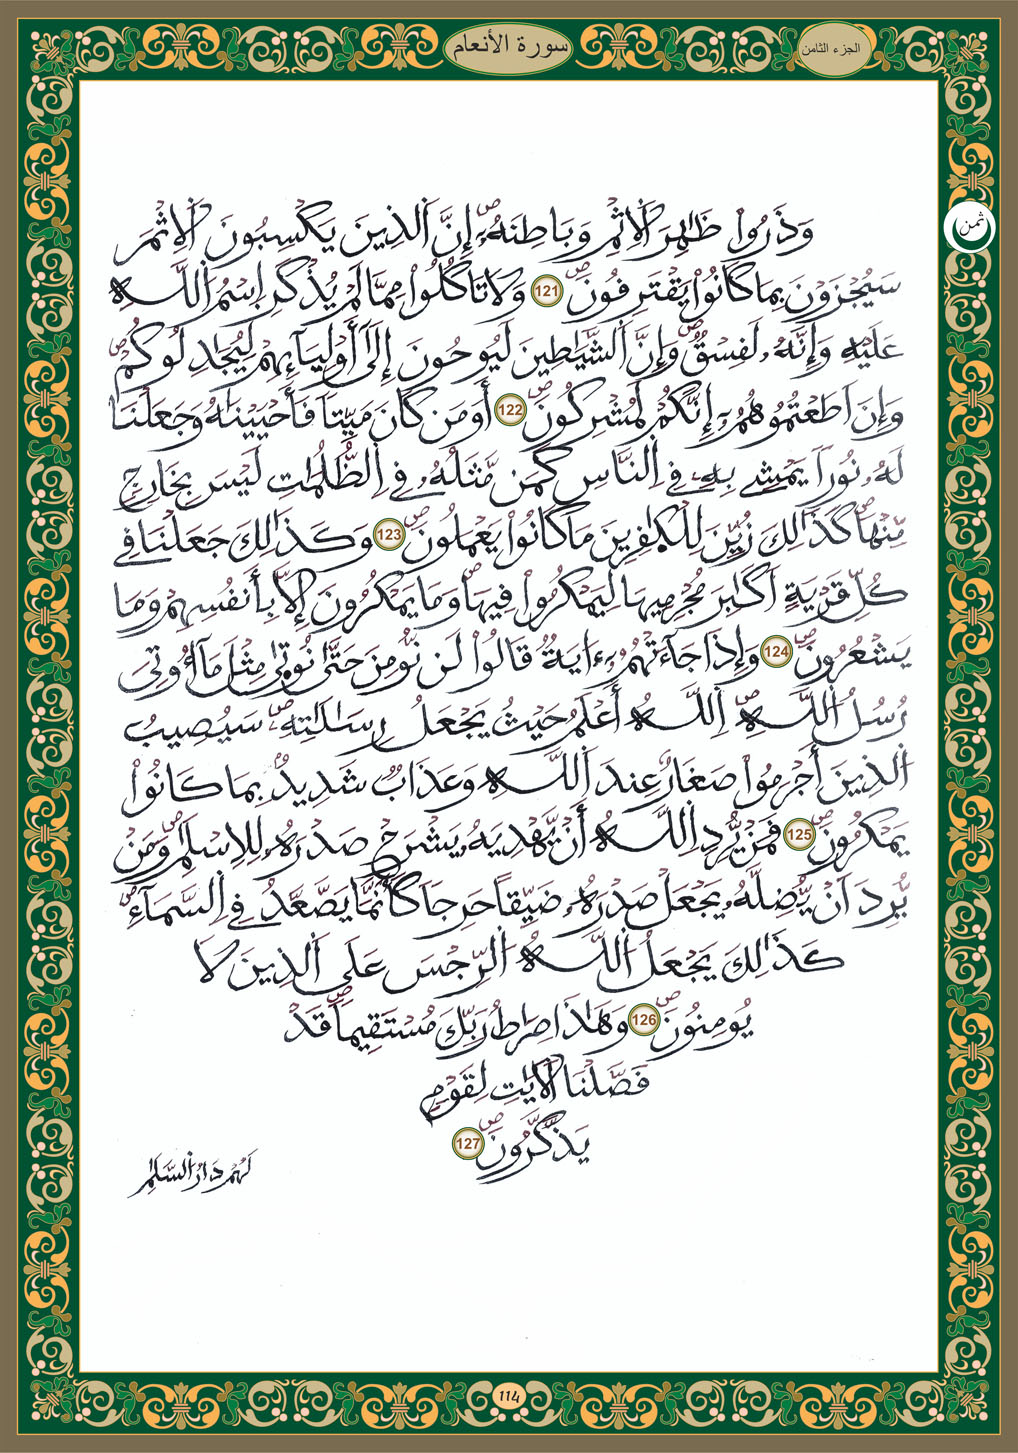 الجزء الثامن
سورة الأنعام
ثمن
وَذَرُوا ظَٰهِرَ اَلِاثْمِ وَبَاطِنَهُۥٓ إِنَّ اَلذِينَ يَكْسِبُونَ اَلِاثْمَ
سَيُجْزَوْنَ بِمَا كَانُوا يَقْتَرِفُونَ 121 وَلَا تَاكُلُوا مِمَّا لَمْ يُذْكَرِ اِسْمُ اُللَّهِ
عَلَيْهِ وَإِنَّهُۥ لَفِسْقٌ وَإِنَّ اَلشَّيَٰطِينَ لَيُوحُونَ إِلَىٰ أَوْلِيَآئِهِمْ لِيُجَٰدِلُوكُمْ
وَإِنَ اَطَعْتُمُوهُمُۥٓ إِنَّكُمْ لَمُشْرِكُونَ 122 أَوَمَن كَانَ مَيِّتاً فَأَحْيَيْنَٰهُ وَجَعَلْنَا
لَهُۥ نُوراً يَمْشِي بِهِۦ فِي اِلنَّاسِ كَمَن مَّثَلُهُۥ فِي اِلظُّلُمَٰتِ لَيْسَ بِخَارِجٍ
مِّنْهَا كَذَٰلِكَ زُيِّنَ لِلْكَٰفِرِينَ مَا كَانُوا يَعْمَلُونَ 123 وَكَذَٰلِكَ جَعَلْنَا فِي
كُلِّ قَرْيَةٍ اَكَٰبِرَ مُجْرِمِيهَا لِيَمْكُرُوا فِيهَا وَمَا يَمْكُرُونَ إِلَّا بِأَنفُسِهِمْ وَمَا
يَشْعُرُونَ 124 وَإِذَا جَآءَتْهُمُۥٓ ءَايَةٌ قَالُوا لَن نُّومِنَ حَتَّىٰ نُوتَىٰ مِثْلَ مَآ أُوتِيَ
رُسُلُ اُللَّهِ اِللَّهُ أَعْلَمُ حَيْثُ يَجْعَلُ رِسَٰلَٰتِهِۦ سَيُصِيبُ
اُلذِينَ أَجْرَمُوا صَغَارٌ عِندَ اَللَّهِ وَعَذَابٌ شَدِيدٌ بِمَا كَانُوا
يَمْكُرُونَ 125 فَمَنْ يُّرِدِ اِللَّهُ أَنْ يَّهْدِيَهُۥ يَشْرَحْ صَدْرَهُۥ لِلِاسْلَٰمِ وَمَنْ
يُّرِدَ اَنْ يُّضِلَّهُۥ يَجْعَلْ صَدْرَهُۥ ضَيِّقاً حَرِجاً كَأَنَّمَا يَصَّعَّدُ فِي اِلسَّمَآءِ
كَذَٰلِكَ يَجْعَلُ اُللَّهُ اُلرِّجْسَ عَلَى اَلذِينَ لَا
يُومِنُونَ 126 وَهَٰذَا صِرَٰطُ رَبِّكَ مُسْتَقِيماً قَدْ
فَصَّلْنَا اَلَايَٰتِ لِقَوْمٍ
يَذَّكَّرُونَ 127
لَهُمْ دَارُ اُلسَّلَٰمِ
114